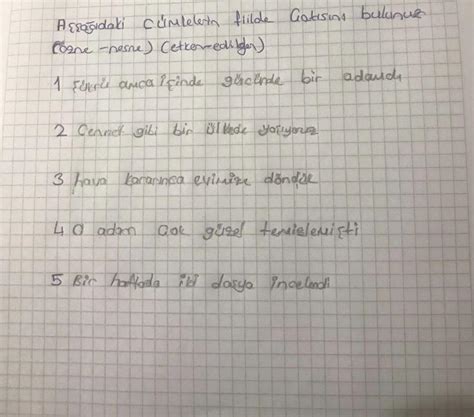 Aşşağıdaki cümlelerin fiilde Çatısını bulunuz
(özne-nesne) (etken-edilgen)
1 amca işinde gücünde bir adamdı
2 Cennet gibi bir ülkede yaşıyoruz
3 hava kararınca evimize döndük
4 O adam çok güzel temizlemişti
5 Bir haftada iki dosya incelendi